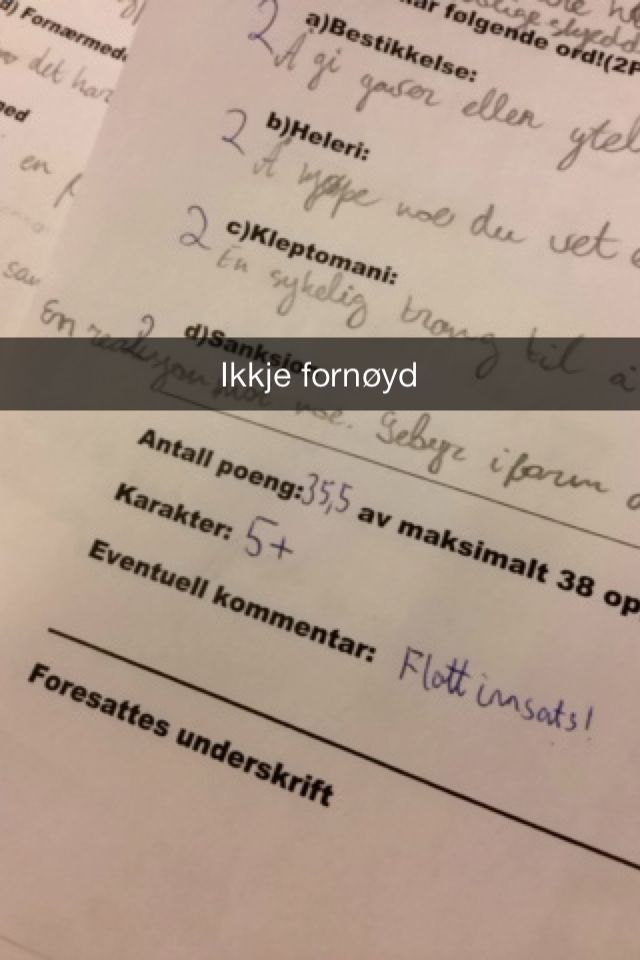 d) Fornærmede
det har
en
sav
følgende ord!(2P
2 a)Bestikkelse:
Å gi gaver eller ytel
2 b)Heleri:
Å kjøpe noe du vet
2 c)Kleptomani:
En sykelig trang til å
2 d)Sanksjon
En reaksjon mot noe. Gebyr i form
Ikkje fornøyd
Antall poeng: 35,5 av maksimalt 38 op
Karakter: 5+
Eventuell kommentar: Flott innsats!
Foresattes underskrift